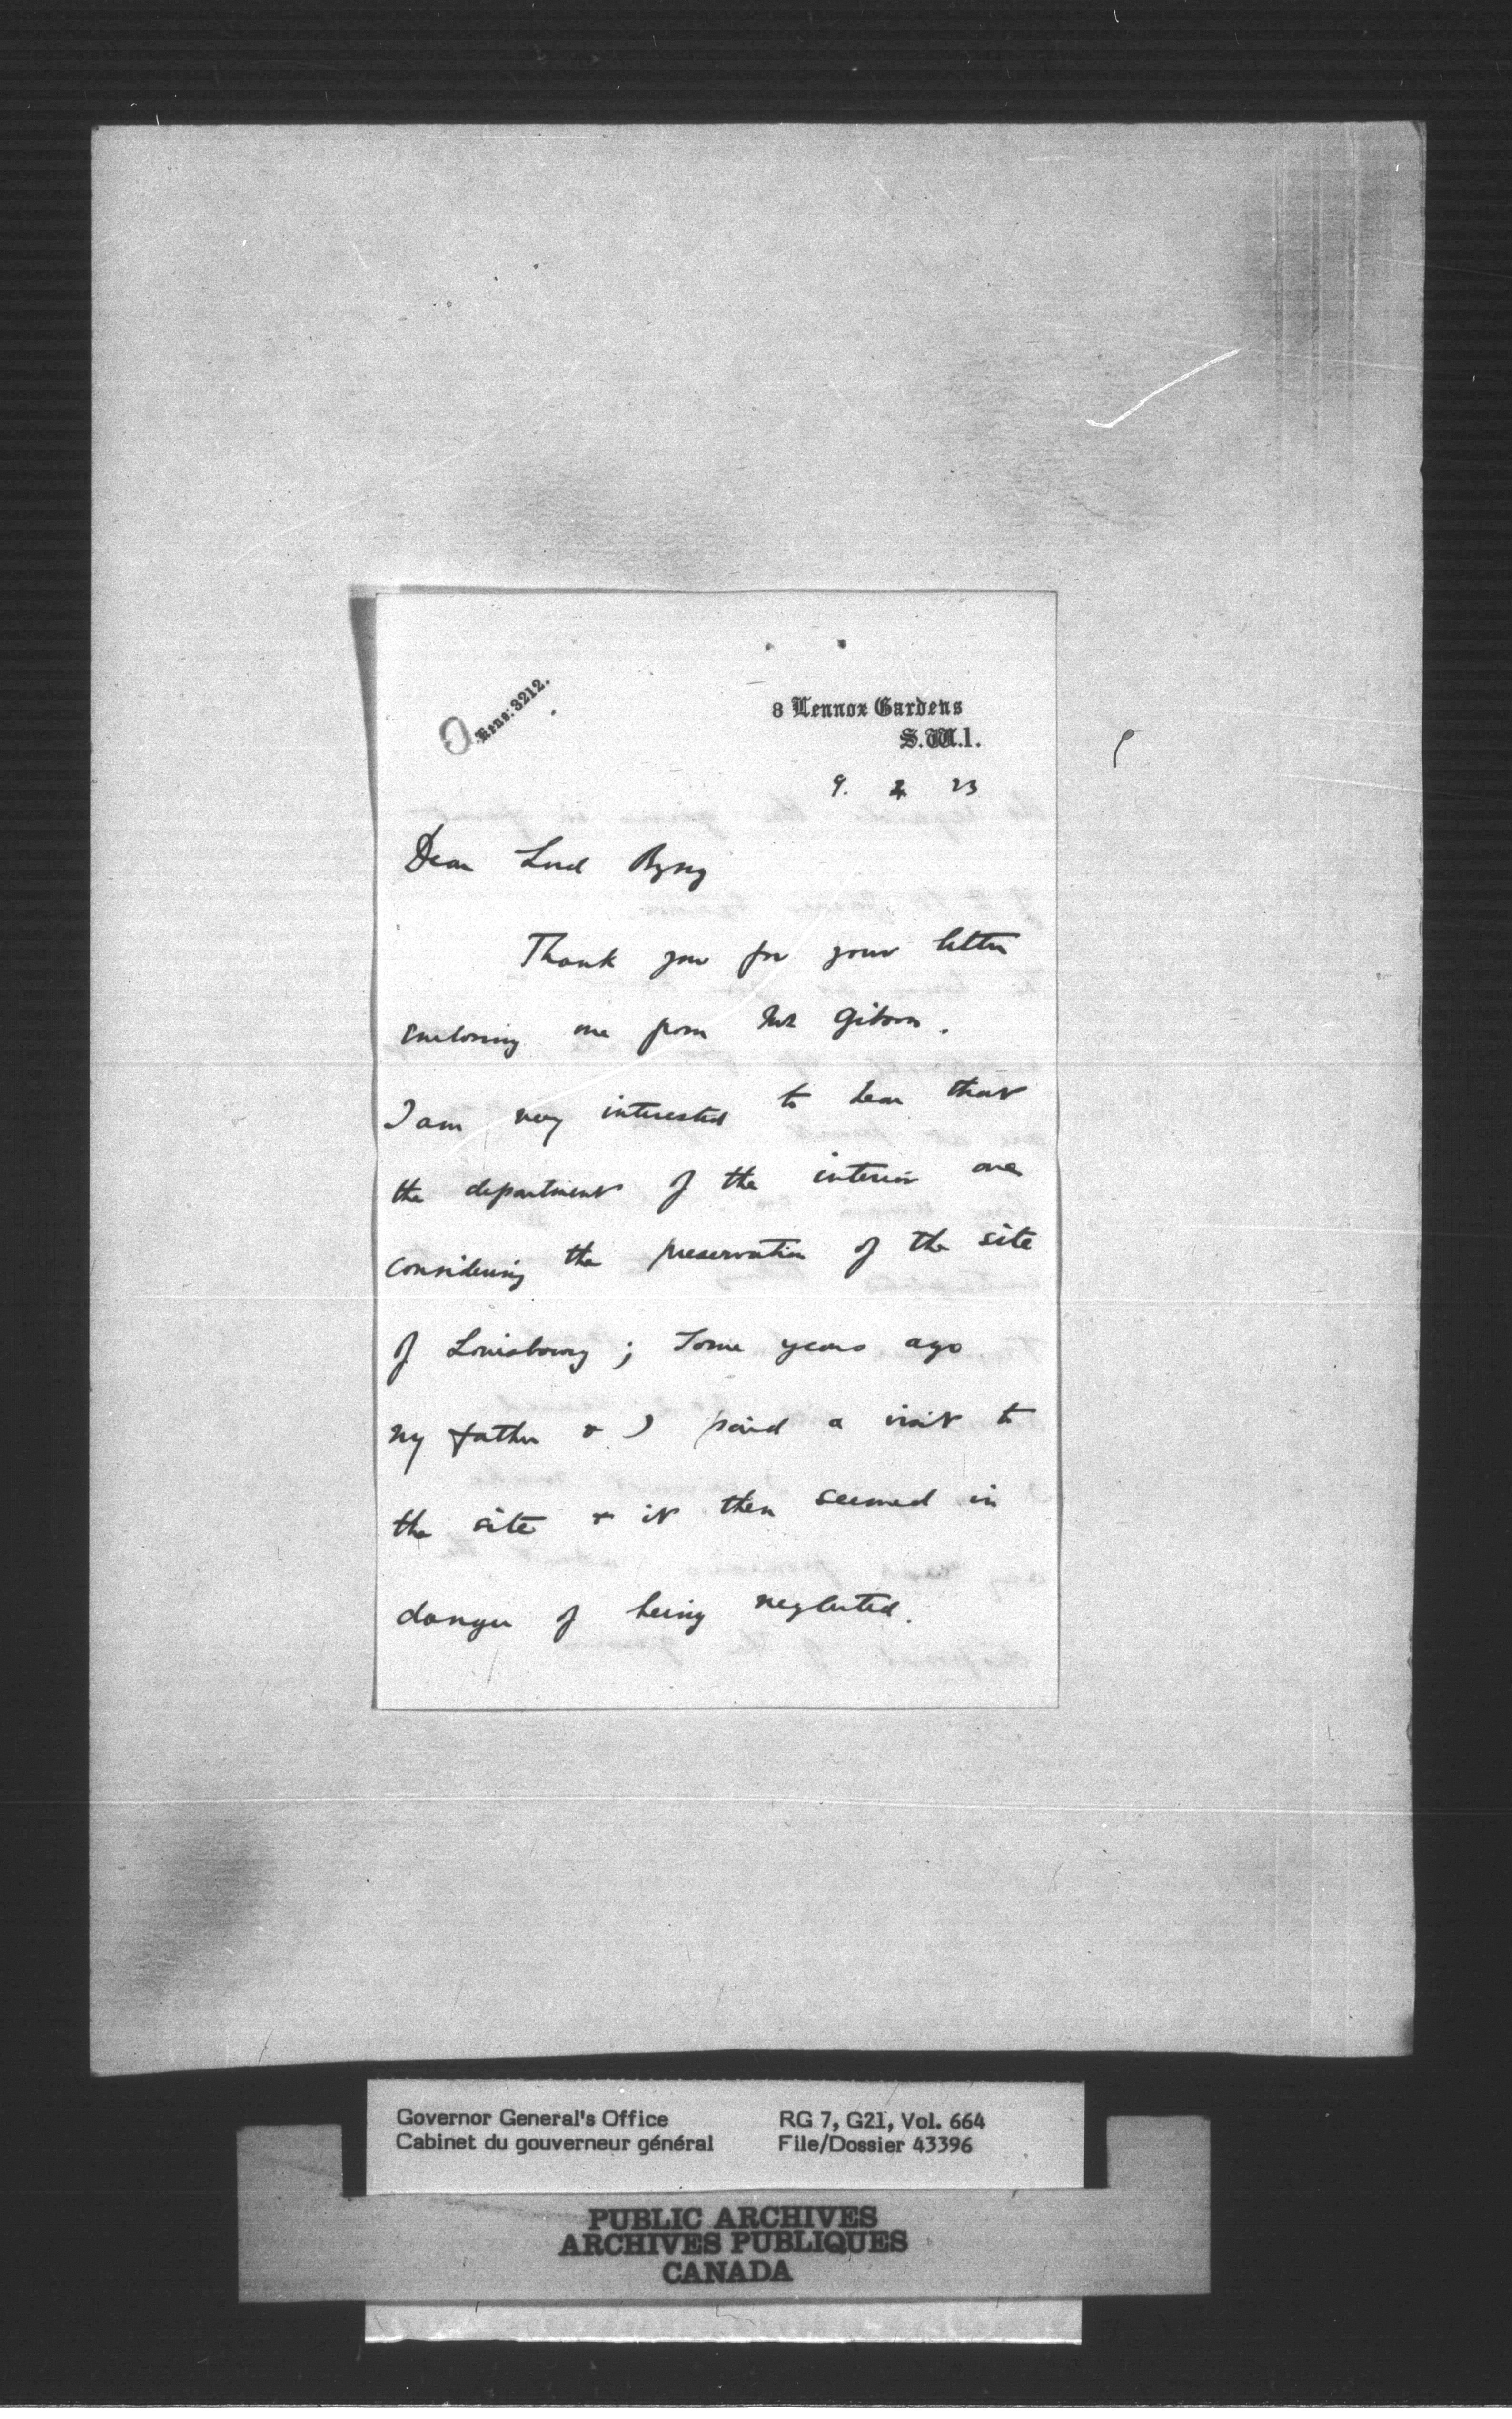 Kens: 3212.
8 Lennox Gardens
S.W.1.
9. 2. 23
Dear Lord Byng
Thank you for your letter
enclosing one from Mr Gibson.
I am very interested to hear that
the department of the interior are
considering the preservation of the site
of Louisbourg; Some years ago
my father & I paid a visit to
the site & it then seemed in
danger of being neglected.
Governor General's Office
Cabinet du gouverneur général
RG 7, G21, Vol. 664
File/Dossier 43396
PUBLIC ARCHIVES
ARCHIVES PUBLIQUES
CANADA